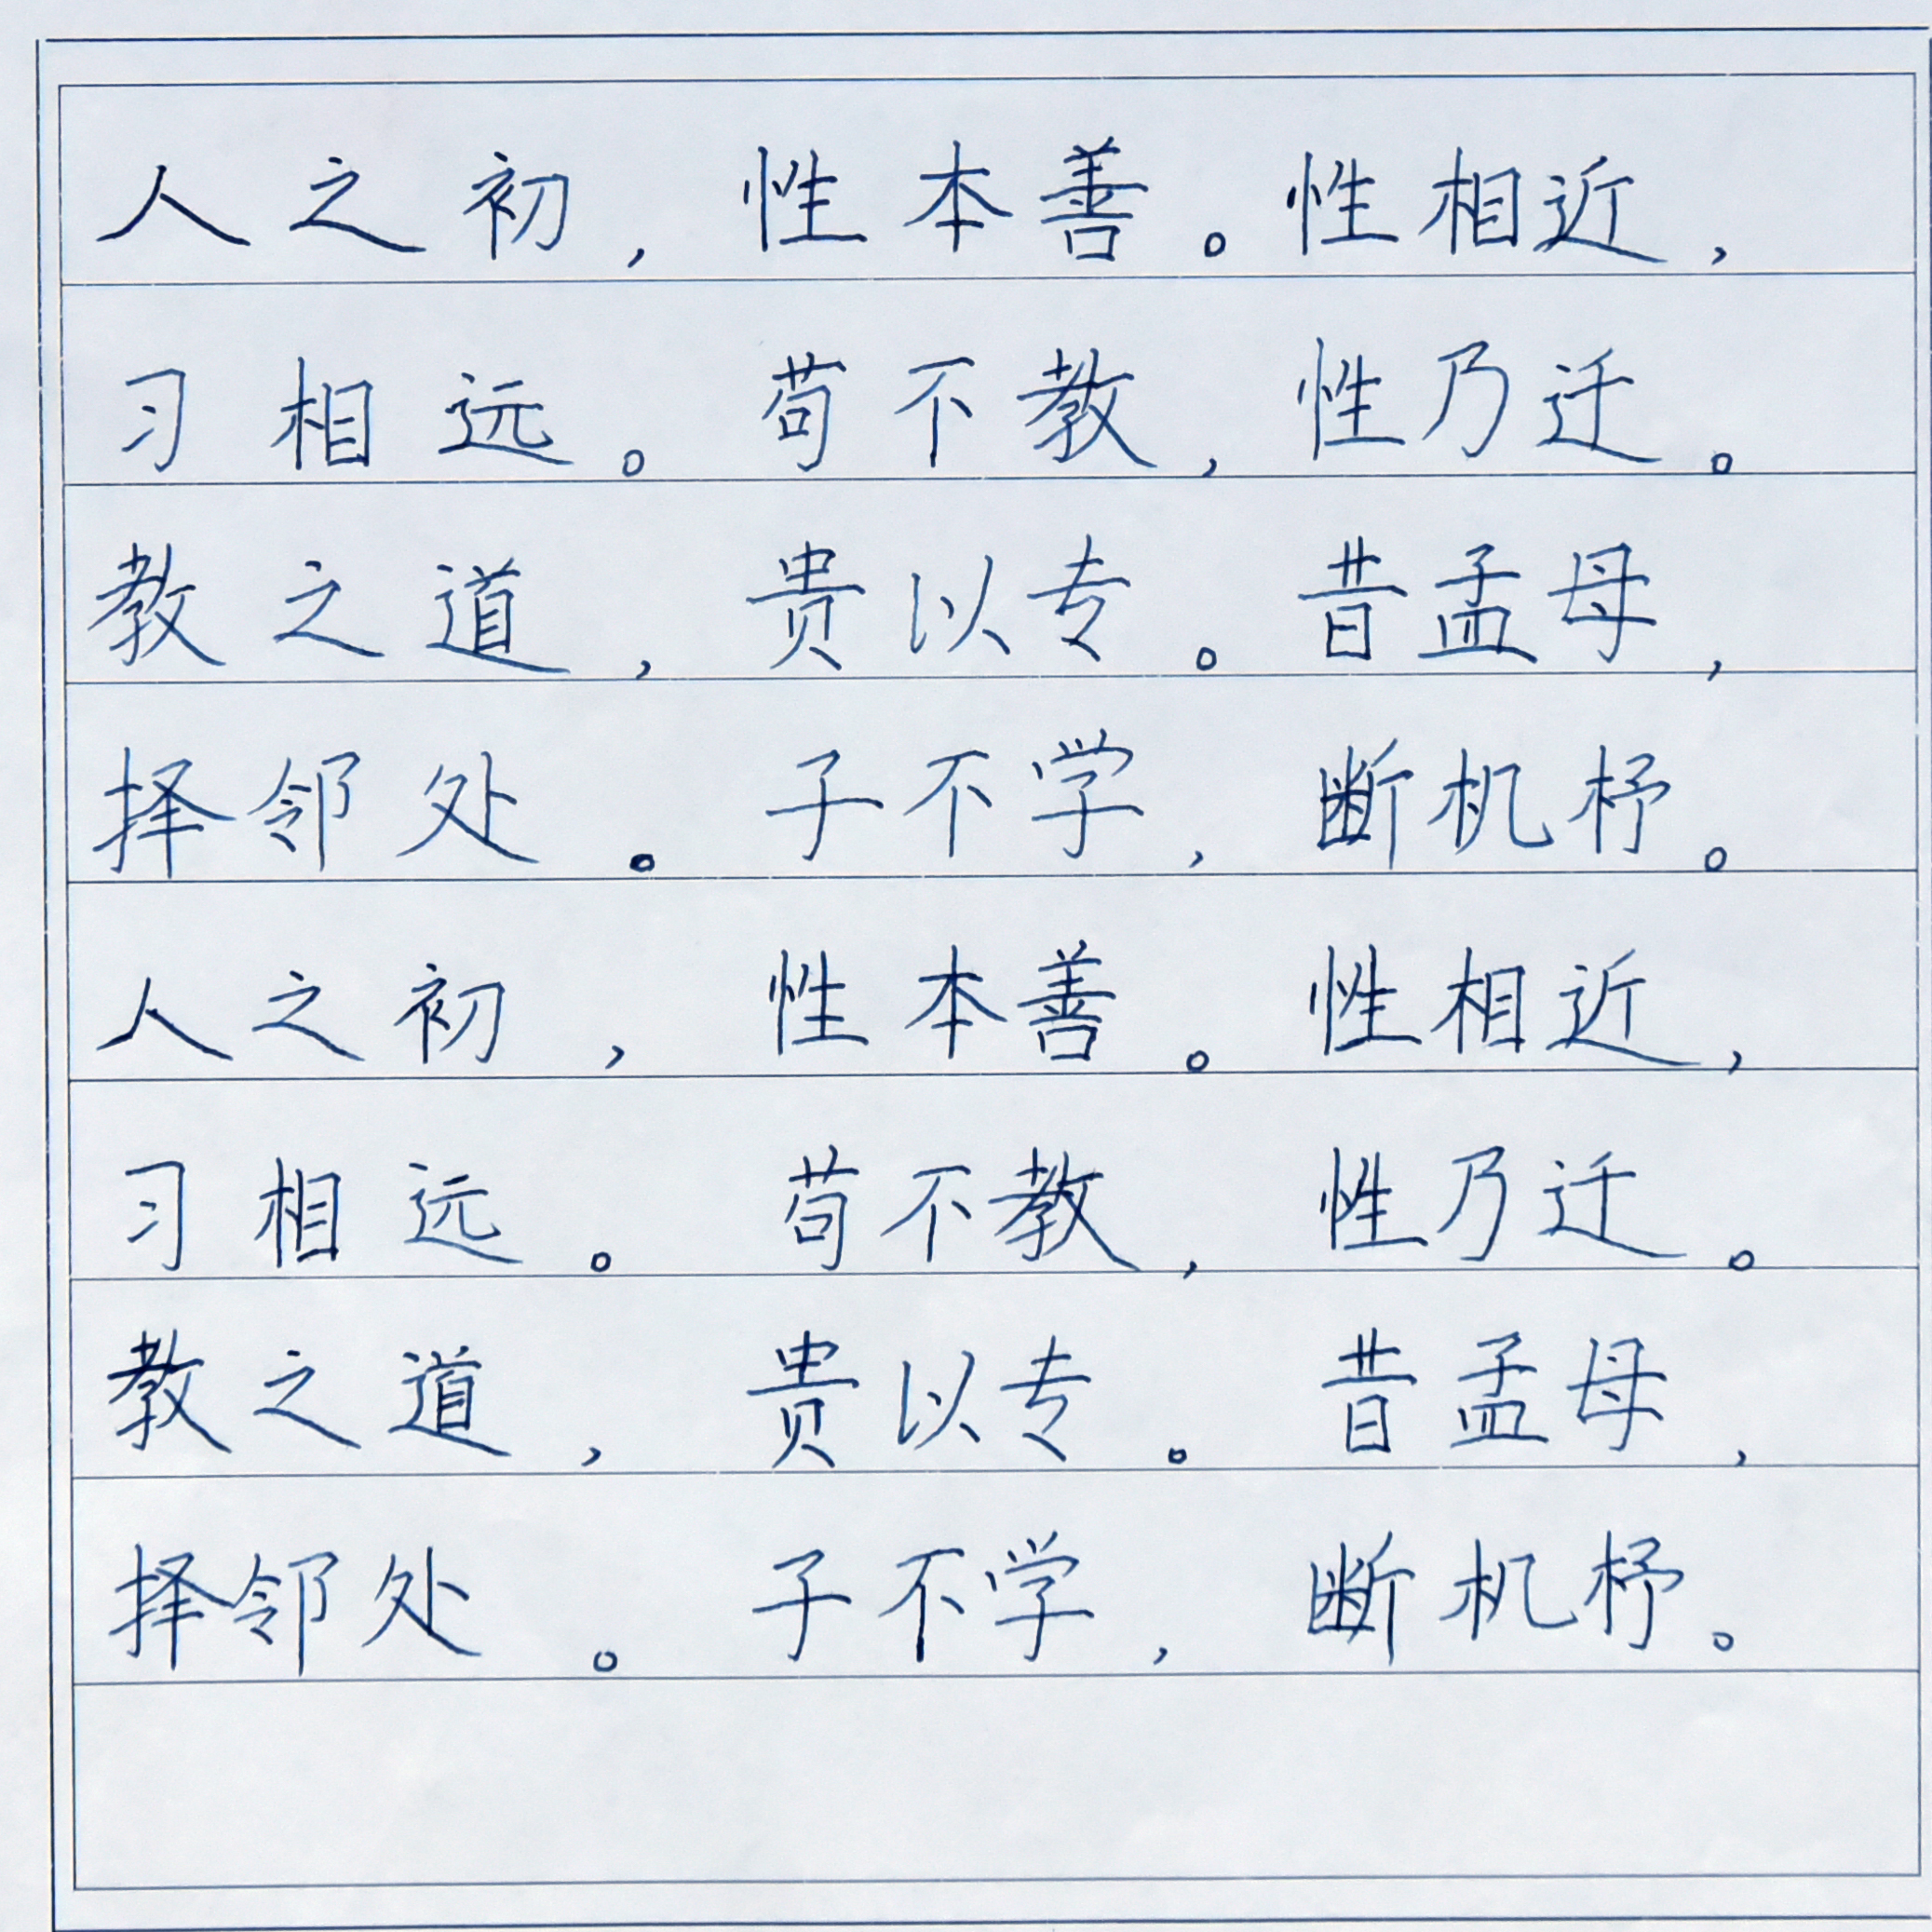 人之初，性本善。性相近，
习相远。苟不教，性乃迁。
教之道，贵以专。昔孟母，
择邻处。子不学，断机杼。
人之初，性本善。性相近，
习相远。苟不教，性乃迁。
教之道，贵以专。昔孟母，
择邻处。子不学，断机杼。